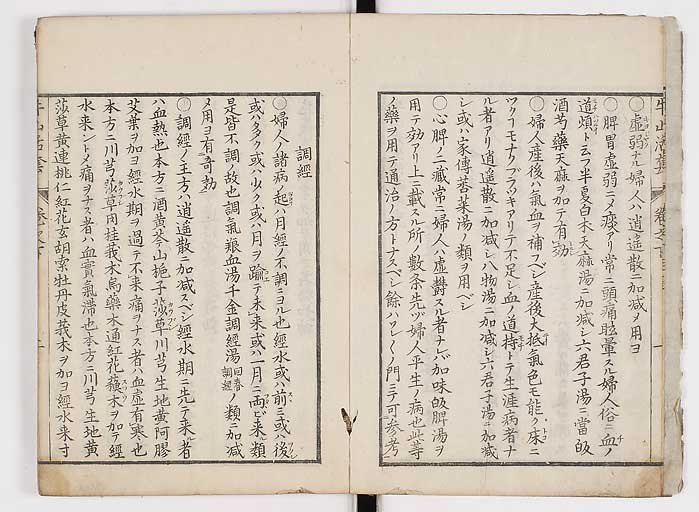 ○虚弱ナル婦人ハ逍遙散ニ加減メ用ヨ
○脾胃虚弱ニメ痰アリ常ニ頭痛眩暈スル婦人俗ニ血ノ
道煩ト云フ半夏白朮天麻湯ニ加減シ六君子湯ニ當皈
酒芍藥天麻ヲ加テ有効
○婦人産後ハ氣血ヲ補フベシ産後大抵氣色モ能ク床ニ
ツクリモナクブラブラキアリテ不足シ血ノ道持トテ生涯病者ナ
ル者アリ逍遙散ニ加減シ八物湯ニ加減シ六君子湯ニ加減
シ或ハ家傳香葉湯ノ類ヲ用ベシ
○心脾ノ二藏常ニ婦人ハ虚鬱スル者ナレバ加味皈脾湯ヲ
用テ効アリ上ニ載スル所ノ数条先ヅ婦人平生ノ病也此等
ノ藥ヲ用テ通治ノ方トナスベシ餘ハワレ〳〵ノ門ニテ可参考
調經
○婦人ノ諸病ノ起ハ月經ノ不調ニヨル也經水或ハ前ニ或ハ後
或ハ多ク或ハ少ク或ハ月ヲ踰テ未來或ハ一月ニ両ビ來ル類
是皆不調ノ故也調氣養血湯千金調經湯回春調經ノ類ニ加減
メ用ヨ有奇効
○調經ノ主方ハ逍遙散ニ加減スベシ經水期ニ先テ来者
ハ血熱也本方ニ酒黄芩山梔子莎草川芎生地黄阿膠
艾葉ヲ加ヨ經水期ヲ過テ不來痛ヲナス者ハ血虚有寒也
本方ニ川芎莎草肉桂莪朮烏藥木通紅花蘓木ヲ加テ經
水来ントメ痛ヲナス者ハ血實氣滞也本方ニ川芎生地黄
莎草黄連桃仁紅花玄胡索牡丹皮莪朮ヲ加ヨ經水来寸